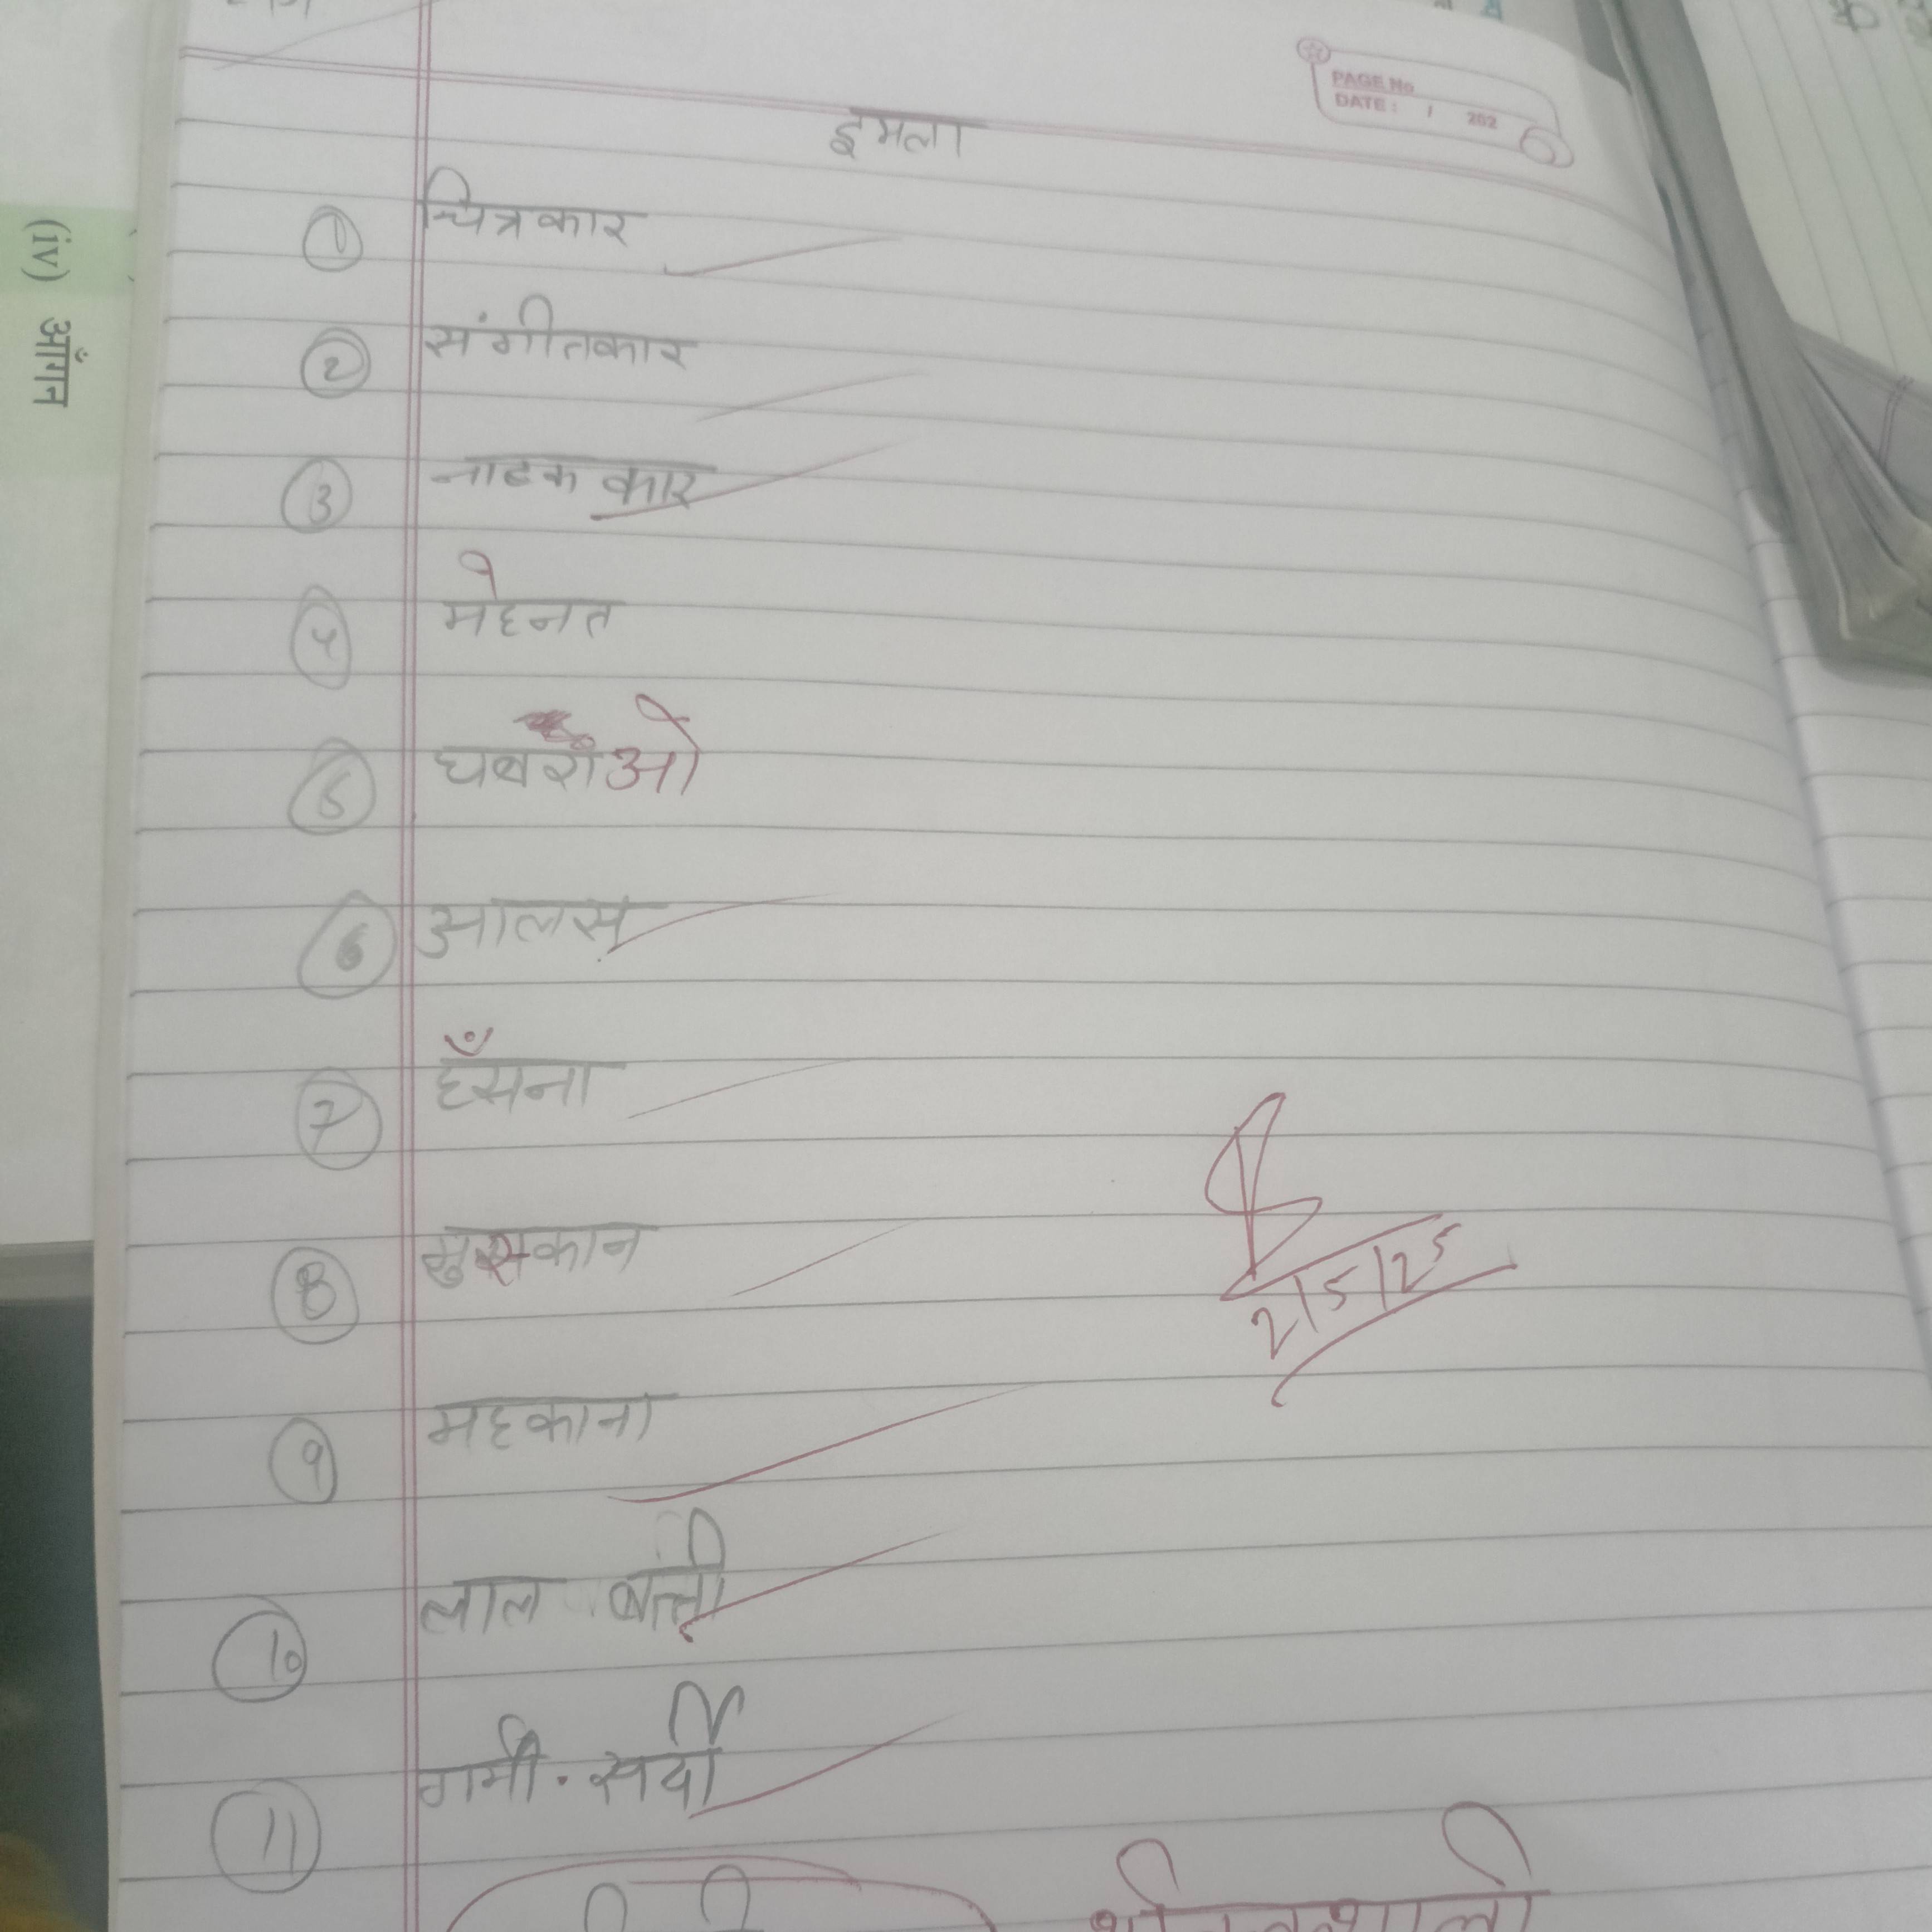 PAGE No
DATE : / 202
इमला
① चित्रकार
② संगीतकार
③ नाटक कार
④ मेहनत
⑤ घबराओ
⑥ आलस
⑦ हँसना
⑧ मुसकान
⑨ महकाना
⑩ लाल बत्ती
⑪ गर्मी. सर्दी
2/5/25
(iv) आँगन